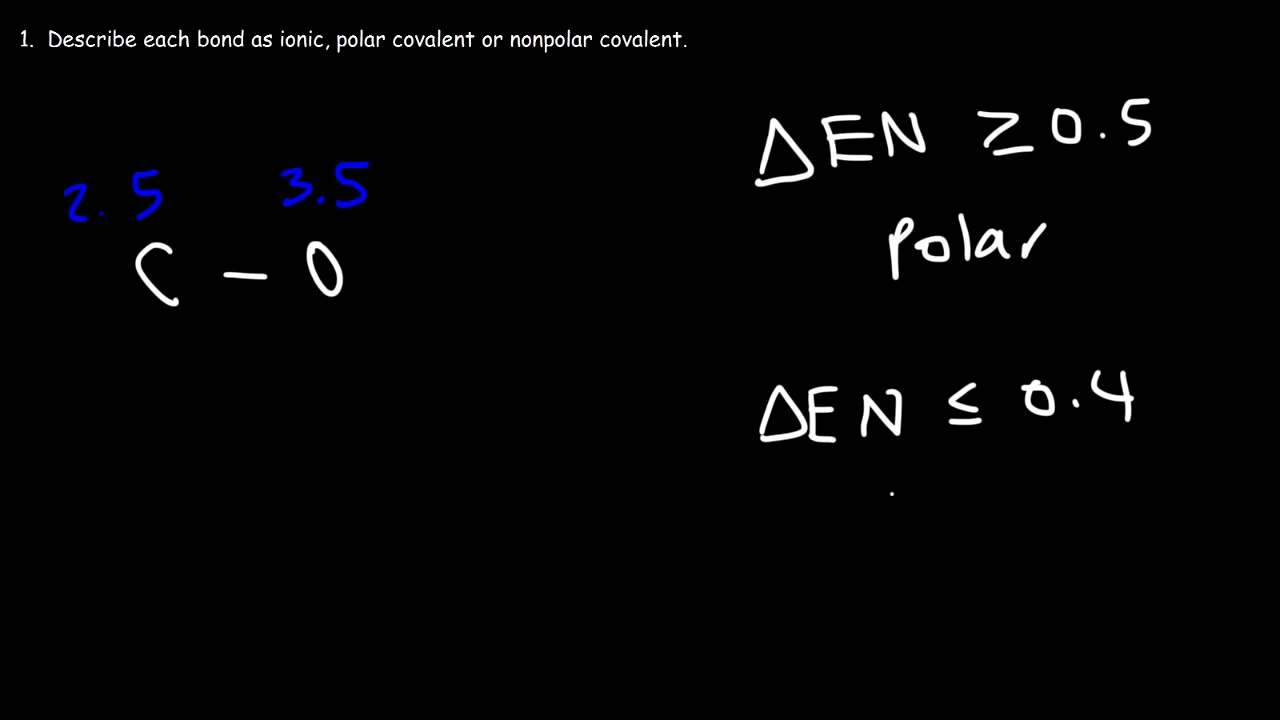 1. Describe each bond as ionic, polar covalent or nonpolar covalent.
ΔEN ≥ 0.5
polar
2.5 3.5
C – O
ΔEN ≤ 0.4